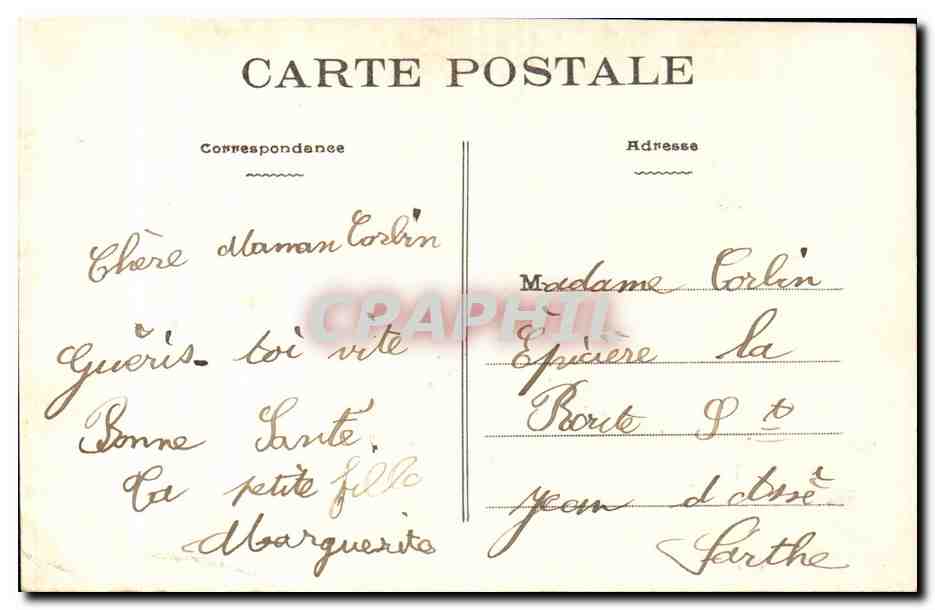 CARTE POSTALE
Correspondance
Adresse
Chère Maman Corbin
Guéris-toi vite
Bonne Santé.
Ta petite fille
Marguerite
Madame Corbin
Épicière la
Route St
jean d Assé
Sarthe
CPAPHIL